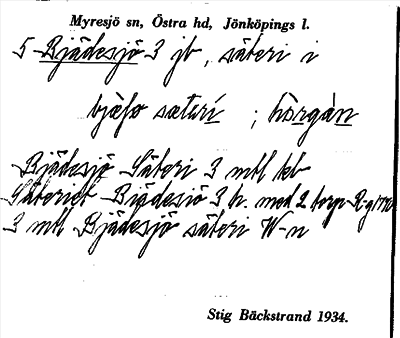 Myresjö sn, Östra hd, Jönköpings l.
5 Bjädesjö 3 jb, säteri i
bjæsø sæterí ; hörgån
Bjädesjö Säteri 3 mtl kb
Säteriet Bjädesjö 3 h. med 2 torp
3 mtl Bjädesjö säteri W-n
Stig Bäckstrand 1934.